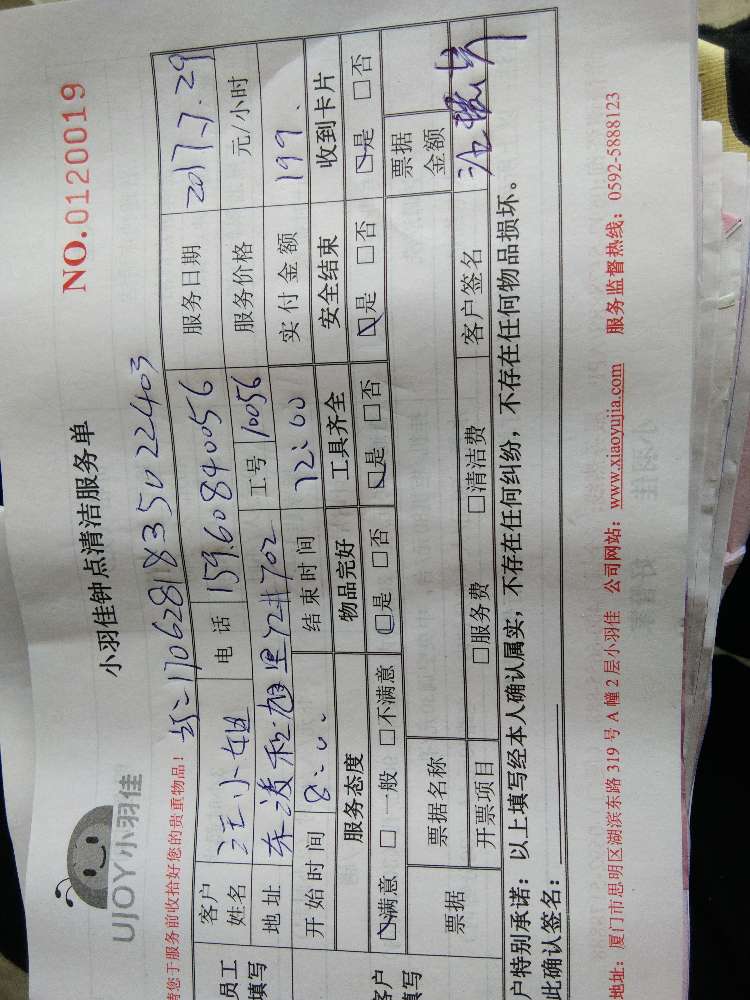 UJOY小羽佳
小羽佳钟点清洁服务单
NO.0120019
请您于服务前收拾好您的贵重物品！
1706281835022403
员工填写
客户姓名 汪小姐 电话 159.60840056 服务日期 2017.7.29
地址 里72#702 工号 10056 服务价格 元/小时
开始时间 8:00. 结束时间 12:00 实付金额 199.
客户填写
服务态度 物品完好 工具齐全 安全结束 收到卡片
☑满意 □一般 □不满意 ☑是 □否 ☑是 □否 ☑是 □否 ☑是 □否
票据 票据名称 票据金额
开票项目 □服务费 □清洁费 客户签名
户特别承诺：以上填写经本人确认属实，不存在任何纠纷，不存在任何物品损坏。
此确认签名：
地址：厦门市思明区湖滨东路 319 号 A 幢 2 层小羽佳 公司网站：www.xiaoyujia.com 服务监督热线：0592-5888123